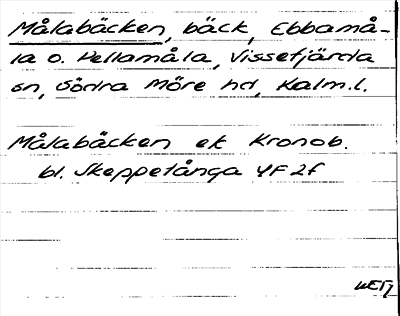 Målabäcken, bäck, Ebbamå-
la o. Hellamåla, Vissefjärda
sn, Södra Möre hd, Kalm.l.
Målabäcken ek Kronob.
bl. Skeppetånga 4F2f